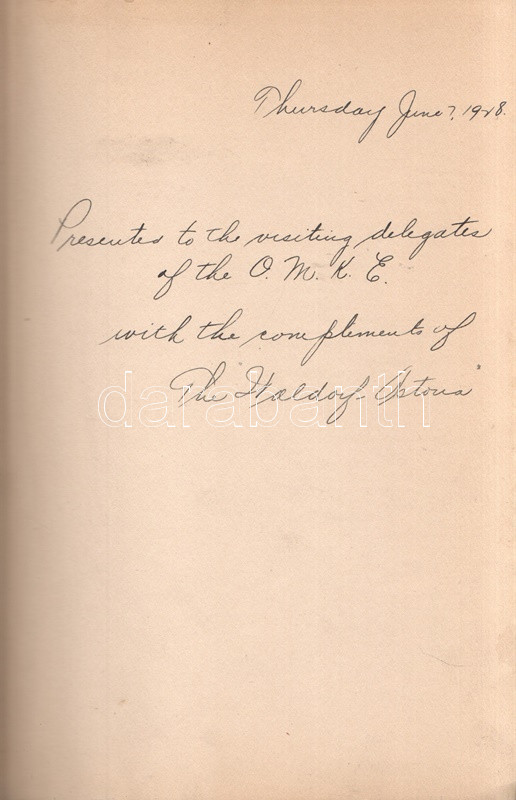 Thursday June 7, 1928.
Presented to the visiting delegates
of the O. M. K. E.
with the complements of
The Waldorf-Astoria"
darabanth